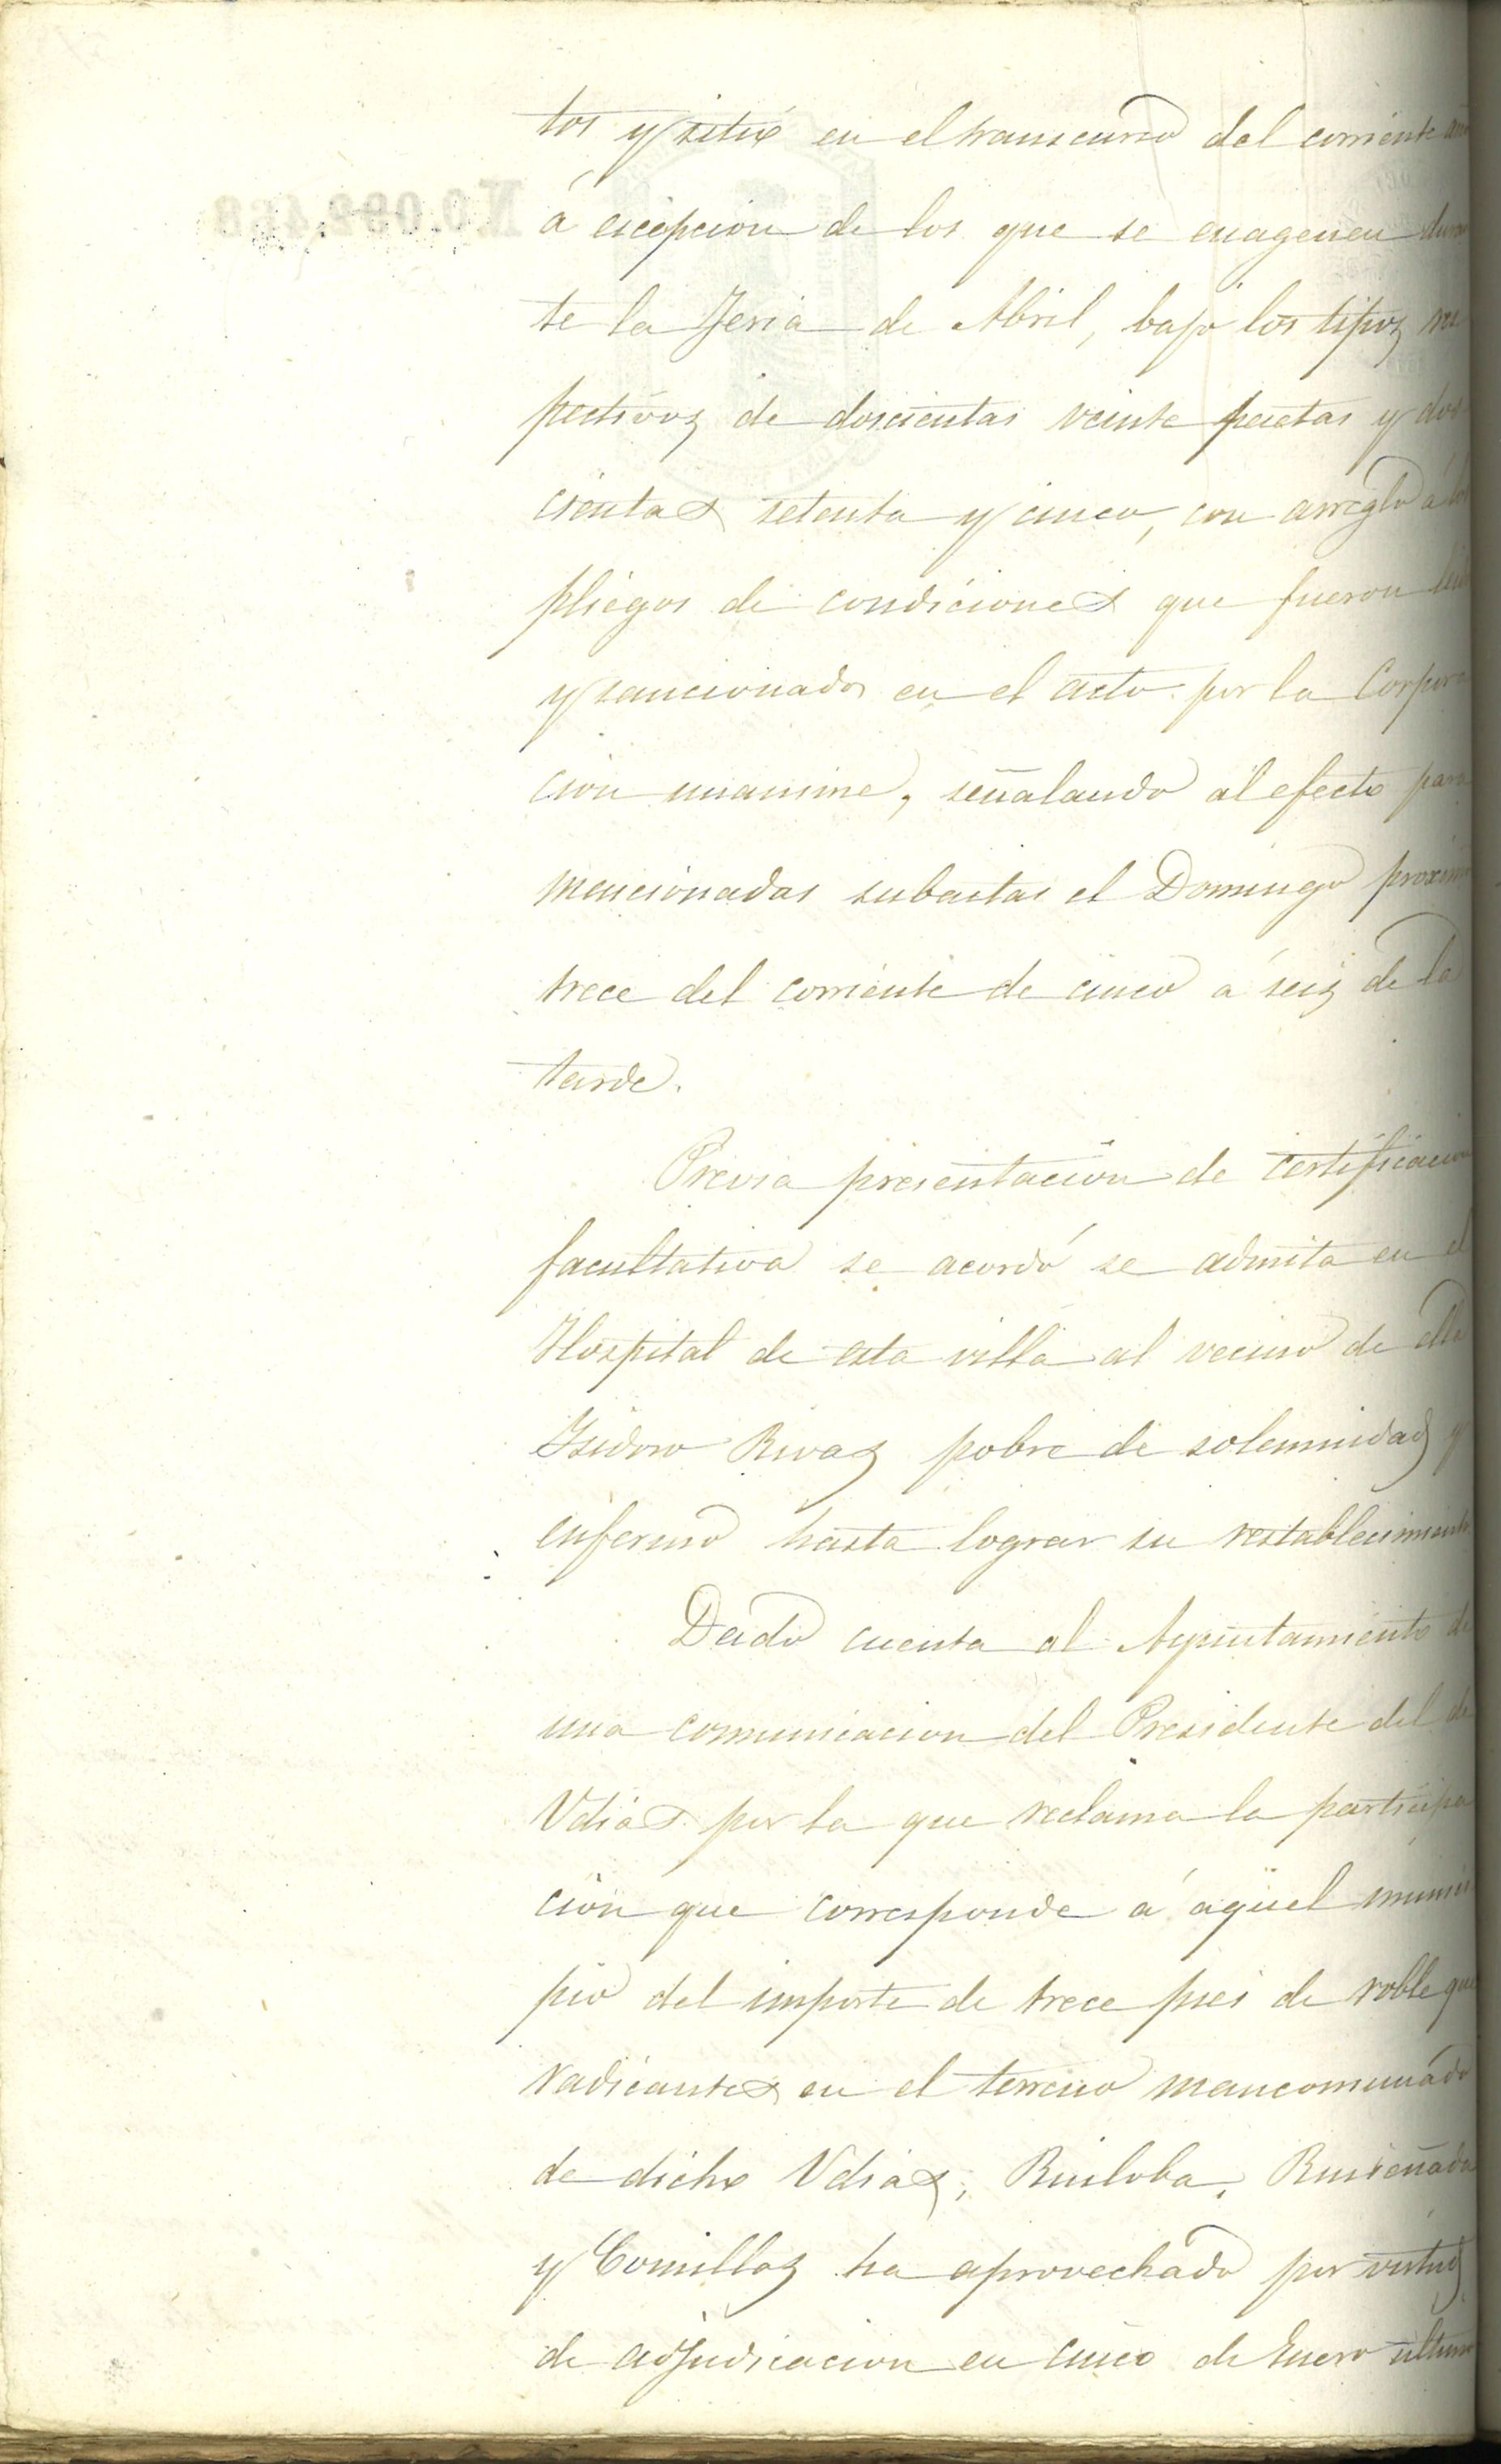 tos y sitio en el transcurso del corriente año
á escepcion de los que se enagenen duran
te la Feria de Abril, bajo los tipos res
pectivos de doscientas veinte pesetas y dos
cientas setenta y cinco, con arreglo á los
pliegos de condiciones que fueron leidos
y sancionados en el acto por la Corpora
cion unanime, señalando al efecto para
mencionadas subastas el Domingo proximo
trece del corriente de cinco á seis de la
tarde.
Previa presentacion de certificacion
facultativa se acordó se admita en el
Hospital de esta villa al vecino de ella
Isidoro Rivas pobre de solemnidad y
enfermo hasta lograr su restablecimiento
Dado cuenta al Ayuntamiento de
una comunicacion del Presidente del de
Udias por la que reclama la participa
cion que corresponde á aquel munici
pio del importe de trece pies de roble que
radicantes en el terreno mancomunado
de dicho Udias, Ruiloba, Ruiseñada
y Comillas ha aprovechado por virtud
de adjudicacion en cinco de Enero ultimo